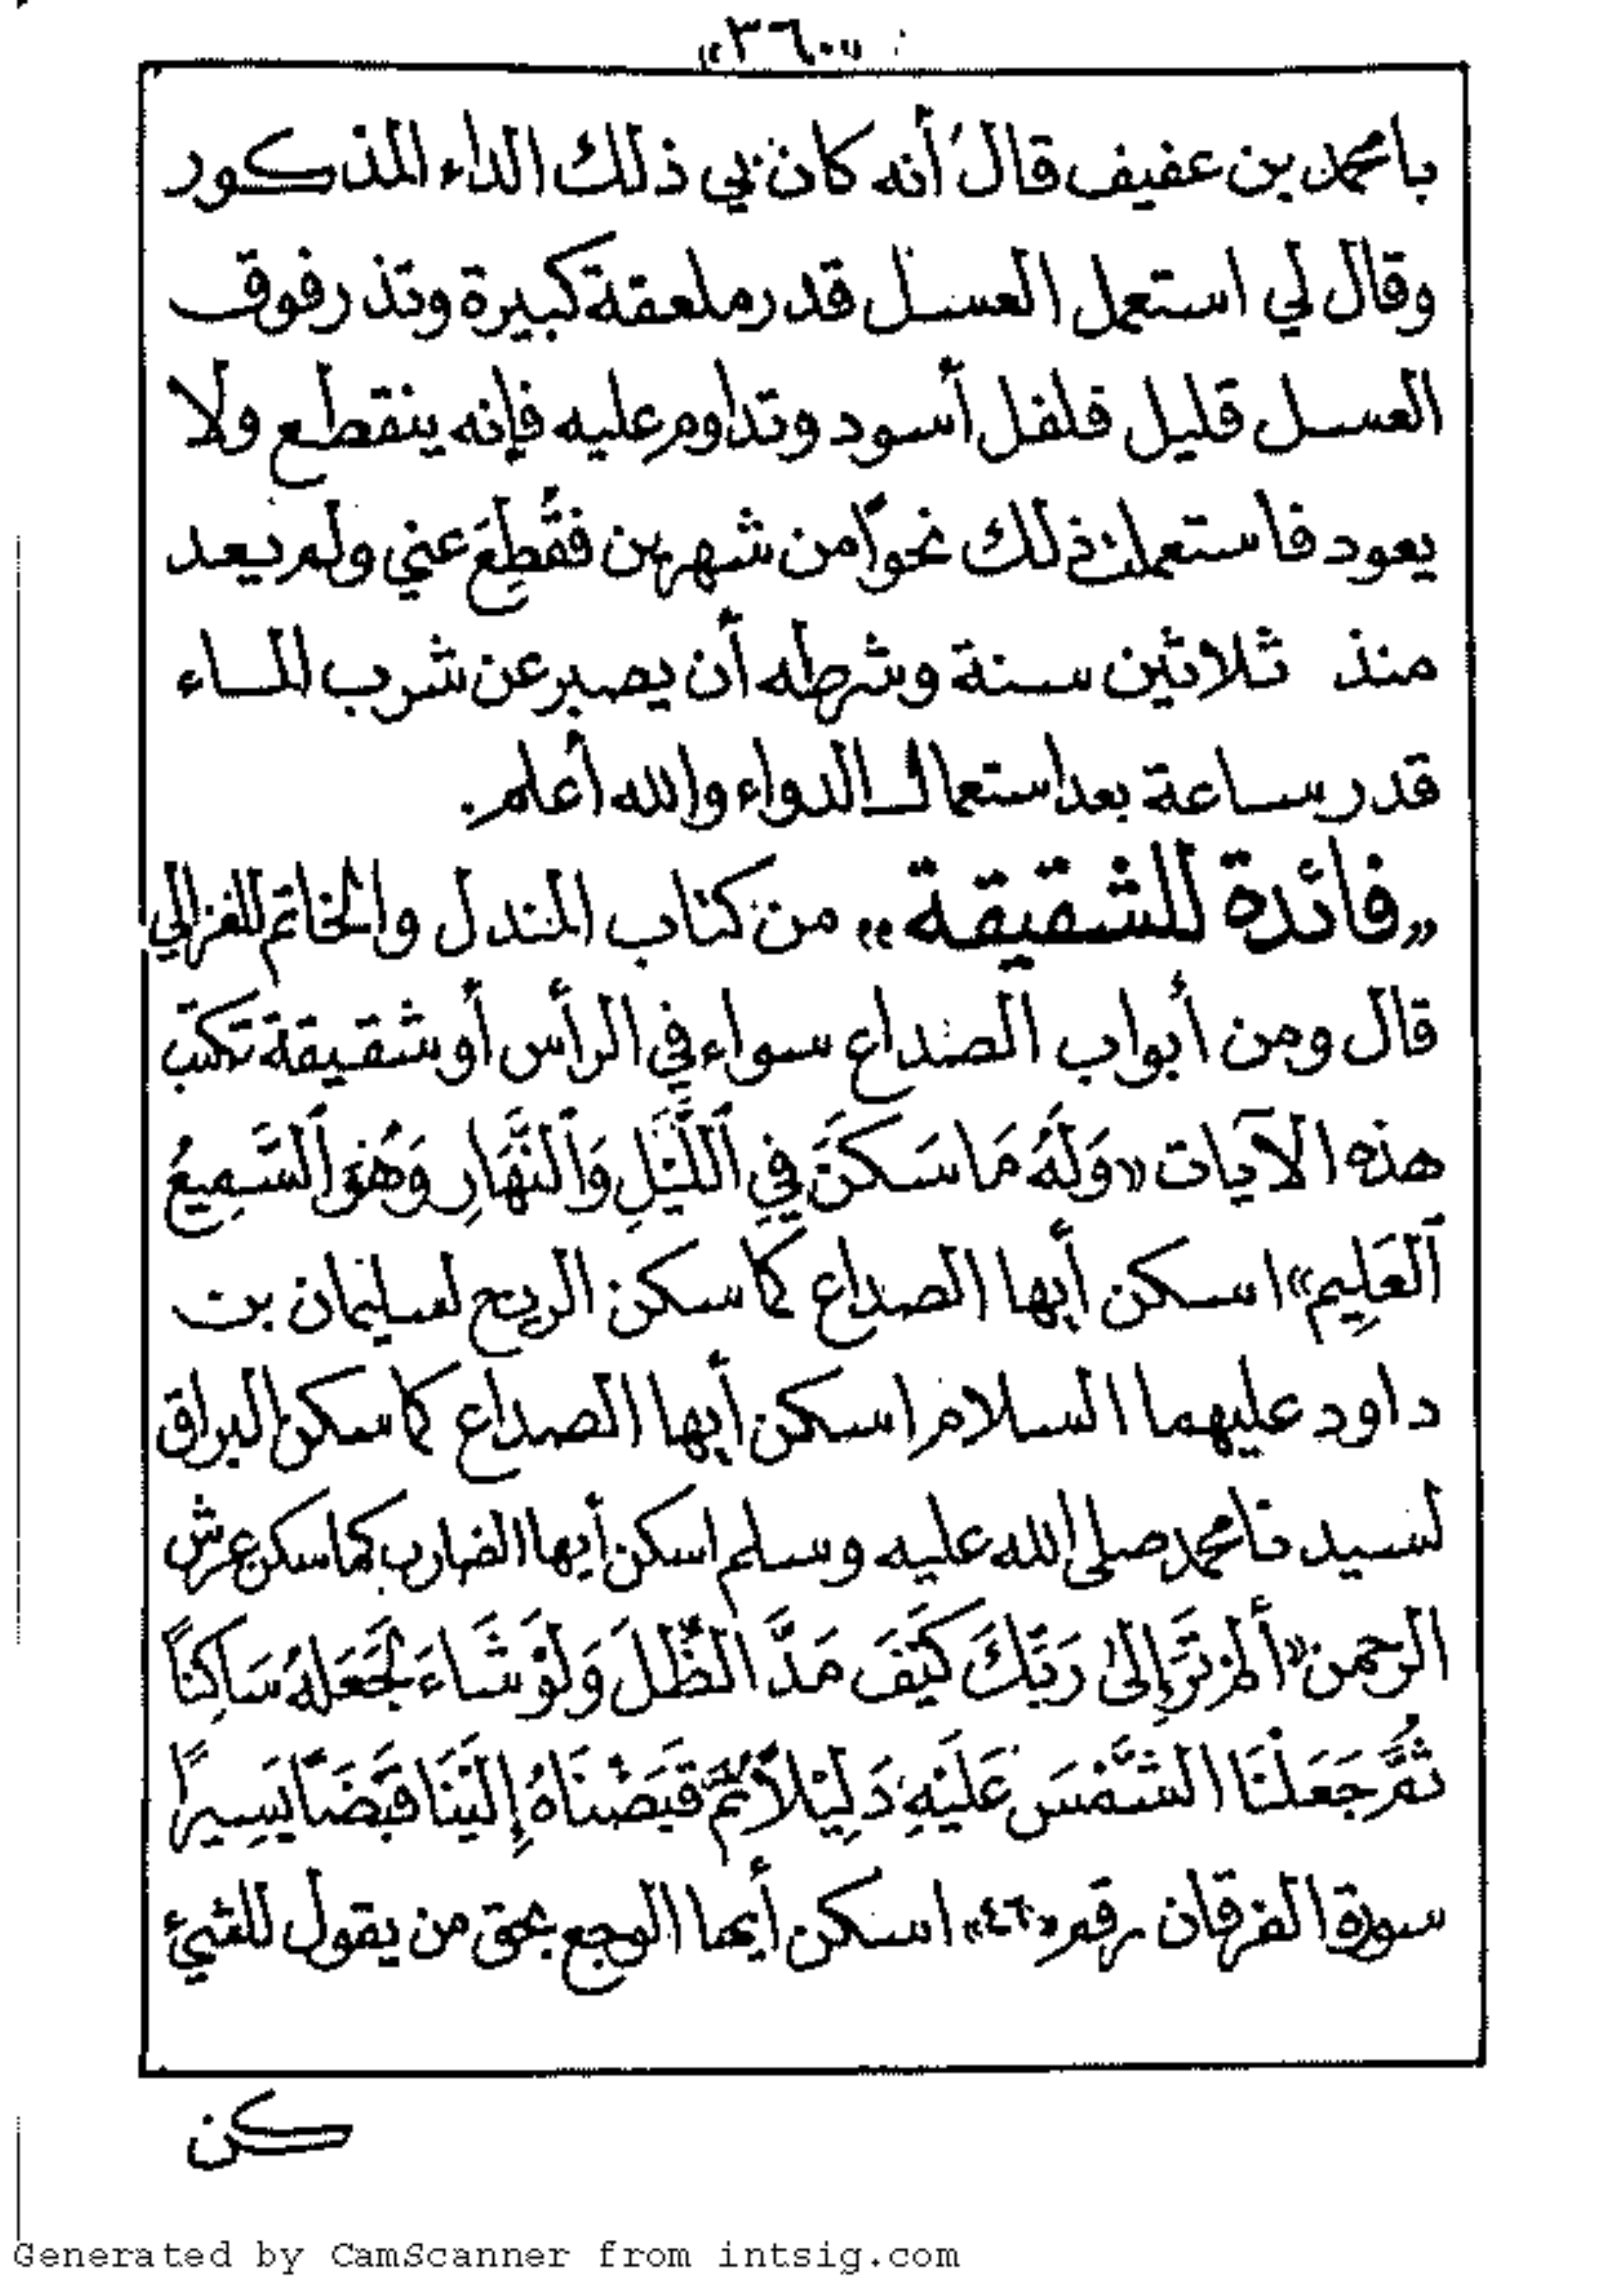 «٣٦٠»
بامحمد بن عفيف قال أنه كان بي ذلك الداء المذكور
وقال لي استعمل العسل قدر ملعقة كبيرة وتذر فوق
العسل قليل فلفل أسود وتداوم عليه فإنه ينقطع ولا
يعود فاستعملت ذلك نحواً من شهرين فقُطِعَ عني ولم يعد
منذ ثلاثين سنة وشرطه أن يصبر عن شرب الماء
قدر ساعة بعد استعمال الدواء والله أعلم.
«فائدة للشقيقة» من كتاب المندل والخاتم للغزالي
قال ومن أبواب الصداع سواء في الرأس أو شقيقة تكتب
هذه الآيات «وَلَهُ مَا سَكَنَ فِي ٱللَّيْلِ وَٱلنَّهَارِ وَهُوَ ٱلسَّمِيعُ
ٱلعَلِيم» اسكن أيها الصداع كما سكن الريح لسليمان بن
داود عليهما السلام اسكن أيها الصداع كما سكن البراق
لسيدنا محمد صلى الله عليه وسلم اسكن أيها الضارب كما سكن عرش
الرحمن «ألم تَرَ إِلىٰ رَبِّكَ كَيْفَ مَدَّ الظِّلَّ وَلَوْ شَاءَ لَجَعَلهُ سَاكِنًا
ثُمَّ جَعَلْنَا الشَّمْسَ عَلَيْهِ دَلِيْلاً ثُمَّ قَبَضْنَاهُ إِلَيْنَا قَبْضًا يَسِيرًا
سورة الفرقان رقم «٤٦» اسكن أيها الوجع بحق من يقول للشيئ
كن
Generated by CamScanner from intsig.com